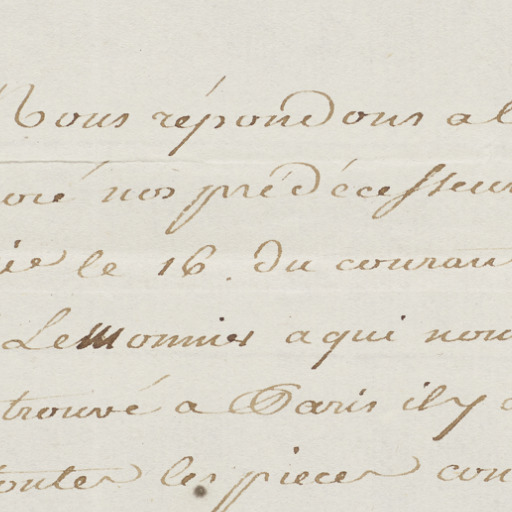 Nous répondons a l
oré nos prédécesseur
ie le 16. du couran
LeMonnier a qui nou
trouvé a Paris il y a
toutes les pieces con